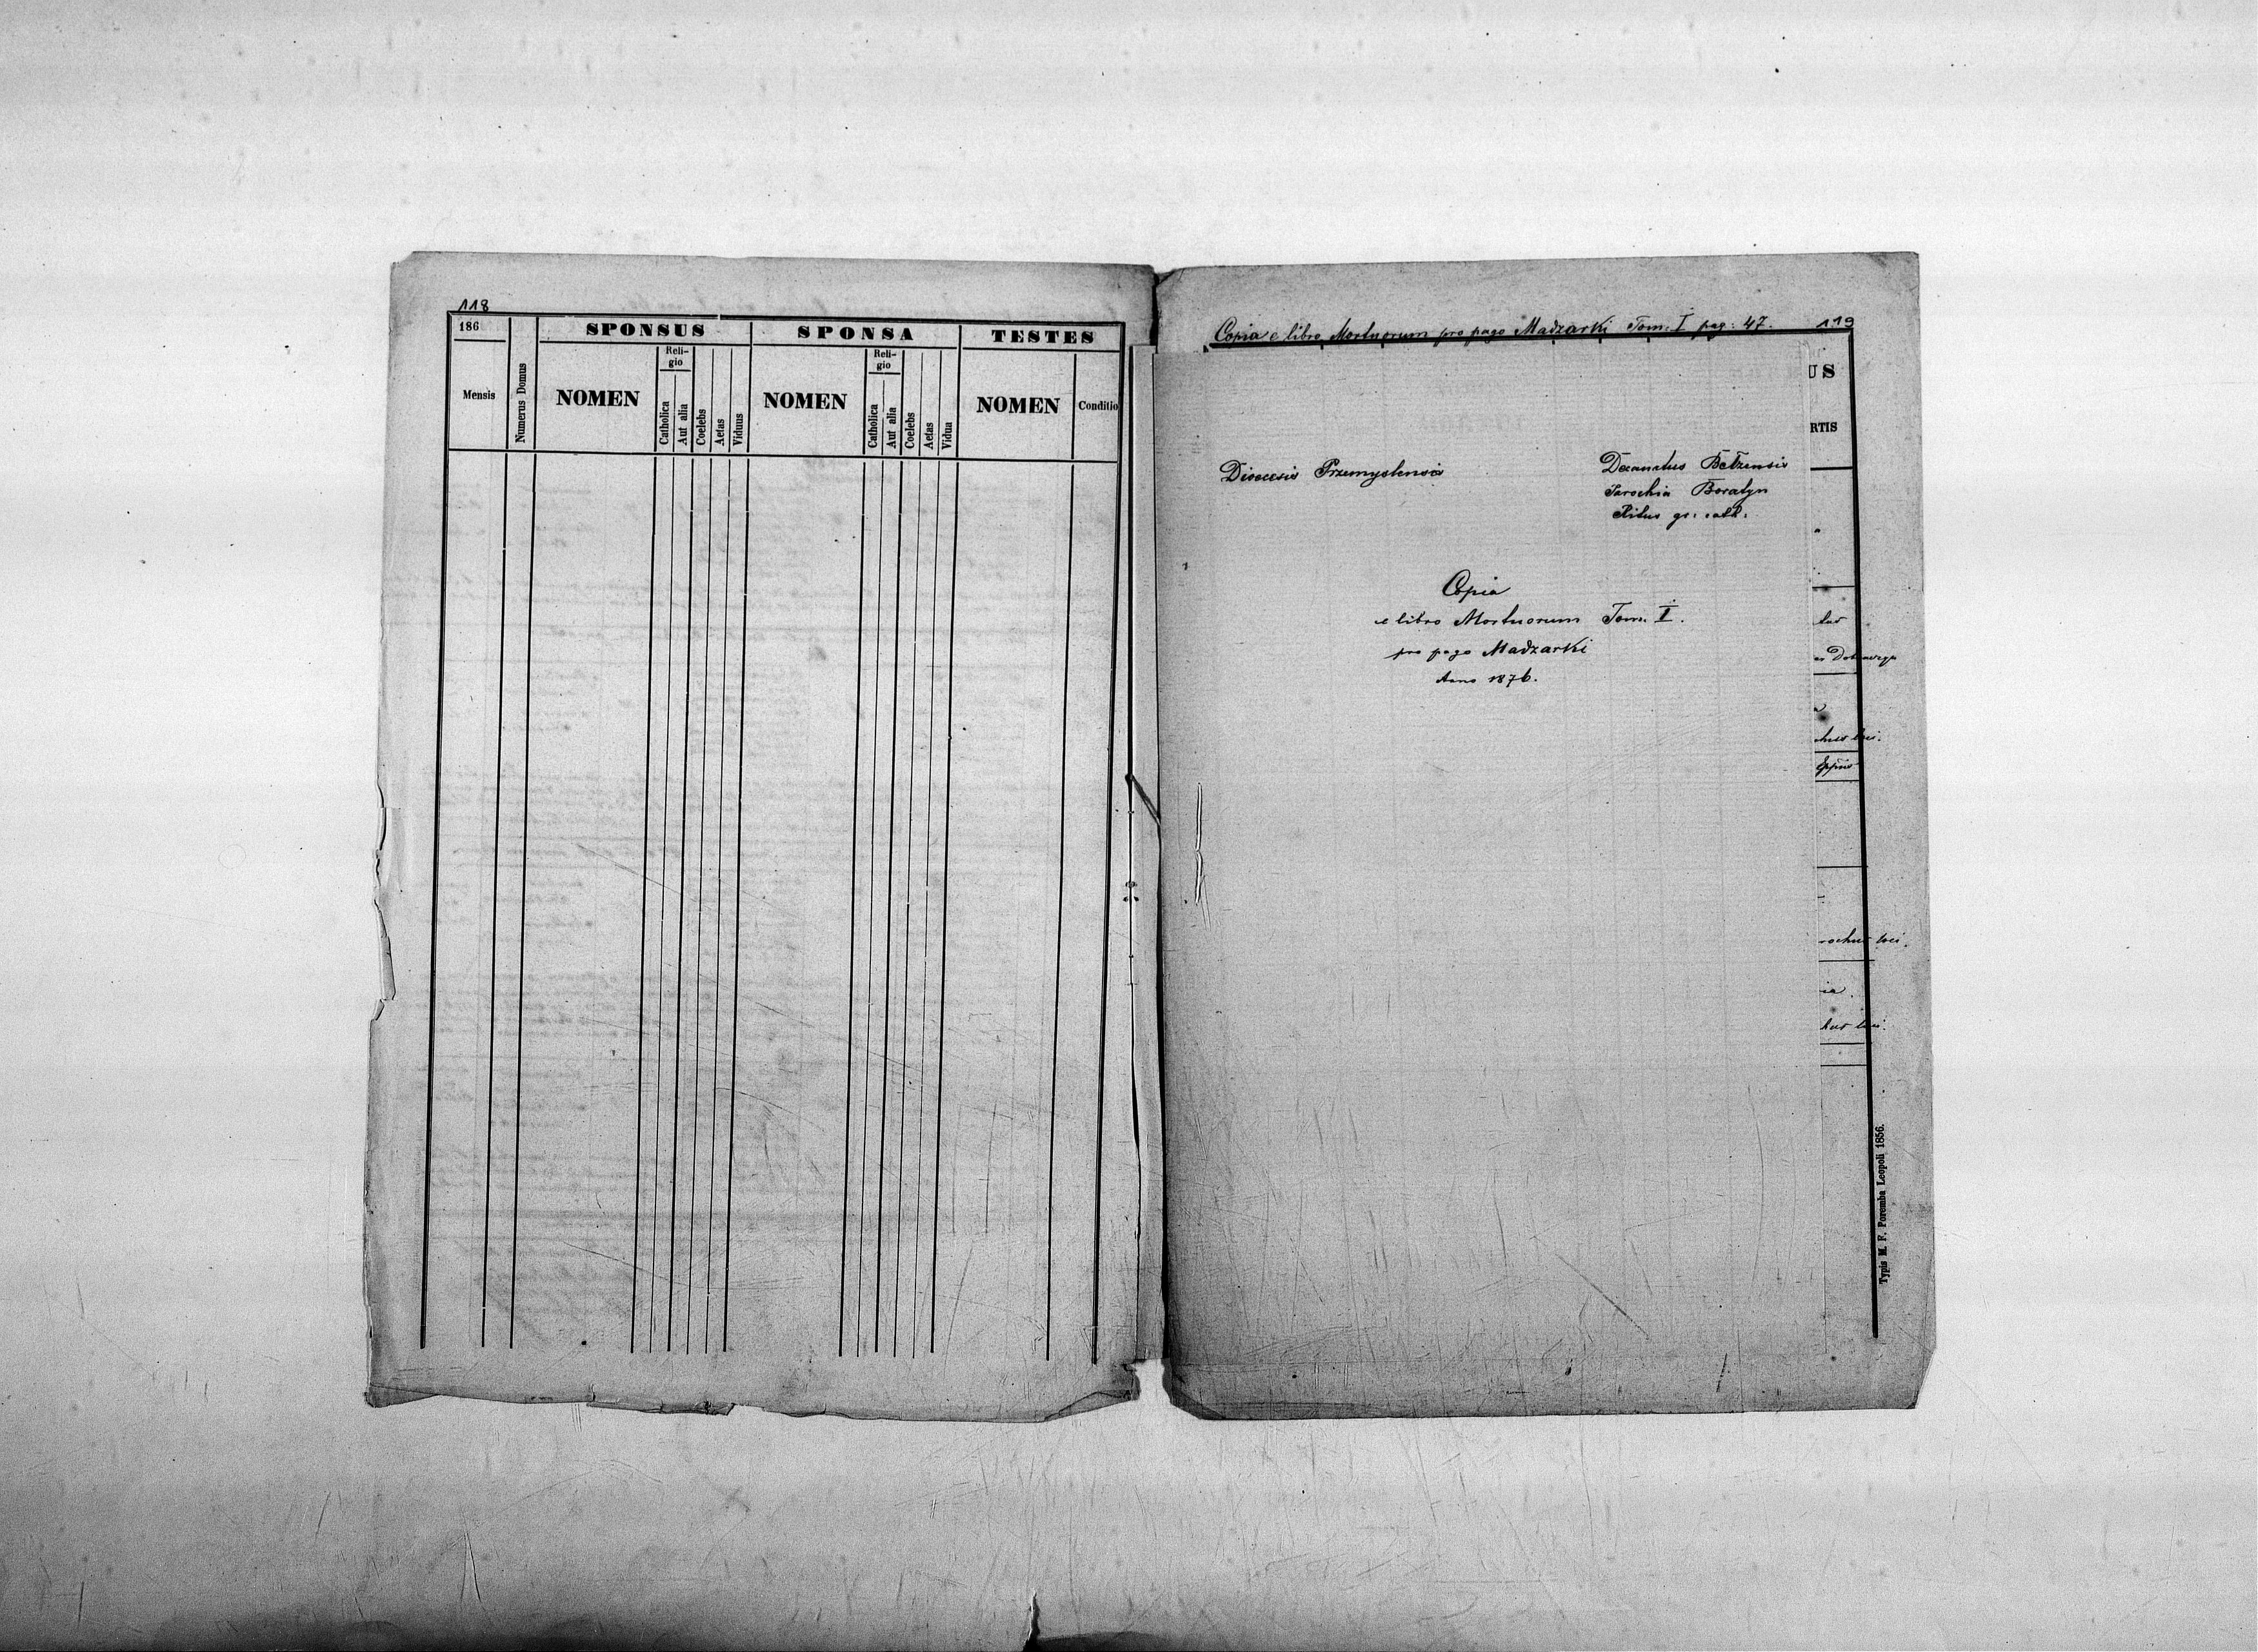 118
186
SPONSUS
SPONSA
TESTES
Mensis
Numerus Domus
NOMEN
Reli-
gio
Catholica
Aut alia
Coelebs
Aetas
Viduus
NOMEN
Reli-
gio
Catholica
Aut alia
Coelebs
Aetas
Vidua
NOMEN
Conditio
Copia e libro Mortuorum pro pago Madzarki Tom. I pag: 47.
119
US
RTIS
Dioecesis Przemyslensis
Decanatus Bełzensis
Parochia Boratyn
Ritus gr. cath.
Copia
e libro Mortuorum Tom. I.
pro pago Madzarki
Anno 1876.
rochus loci.
Typis M. F. Poremba Leopoli 1856.